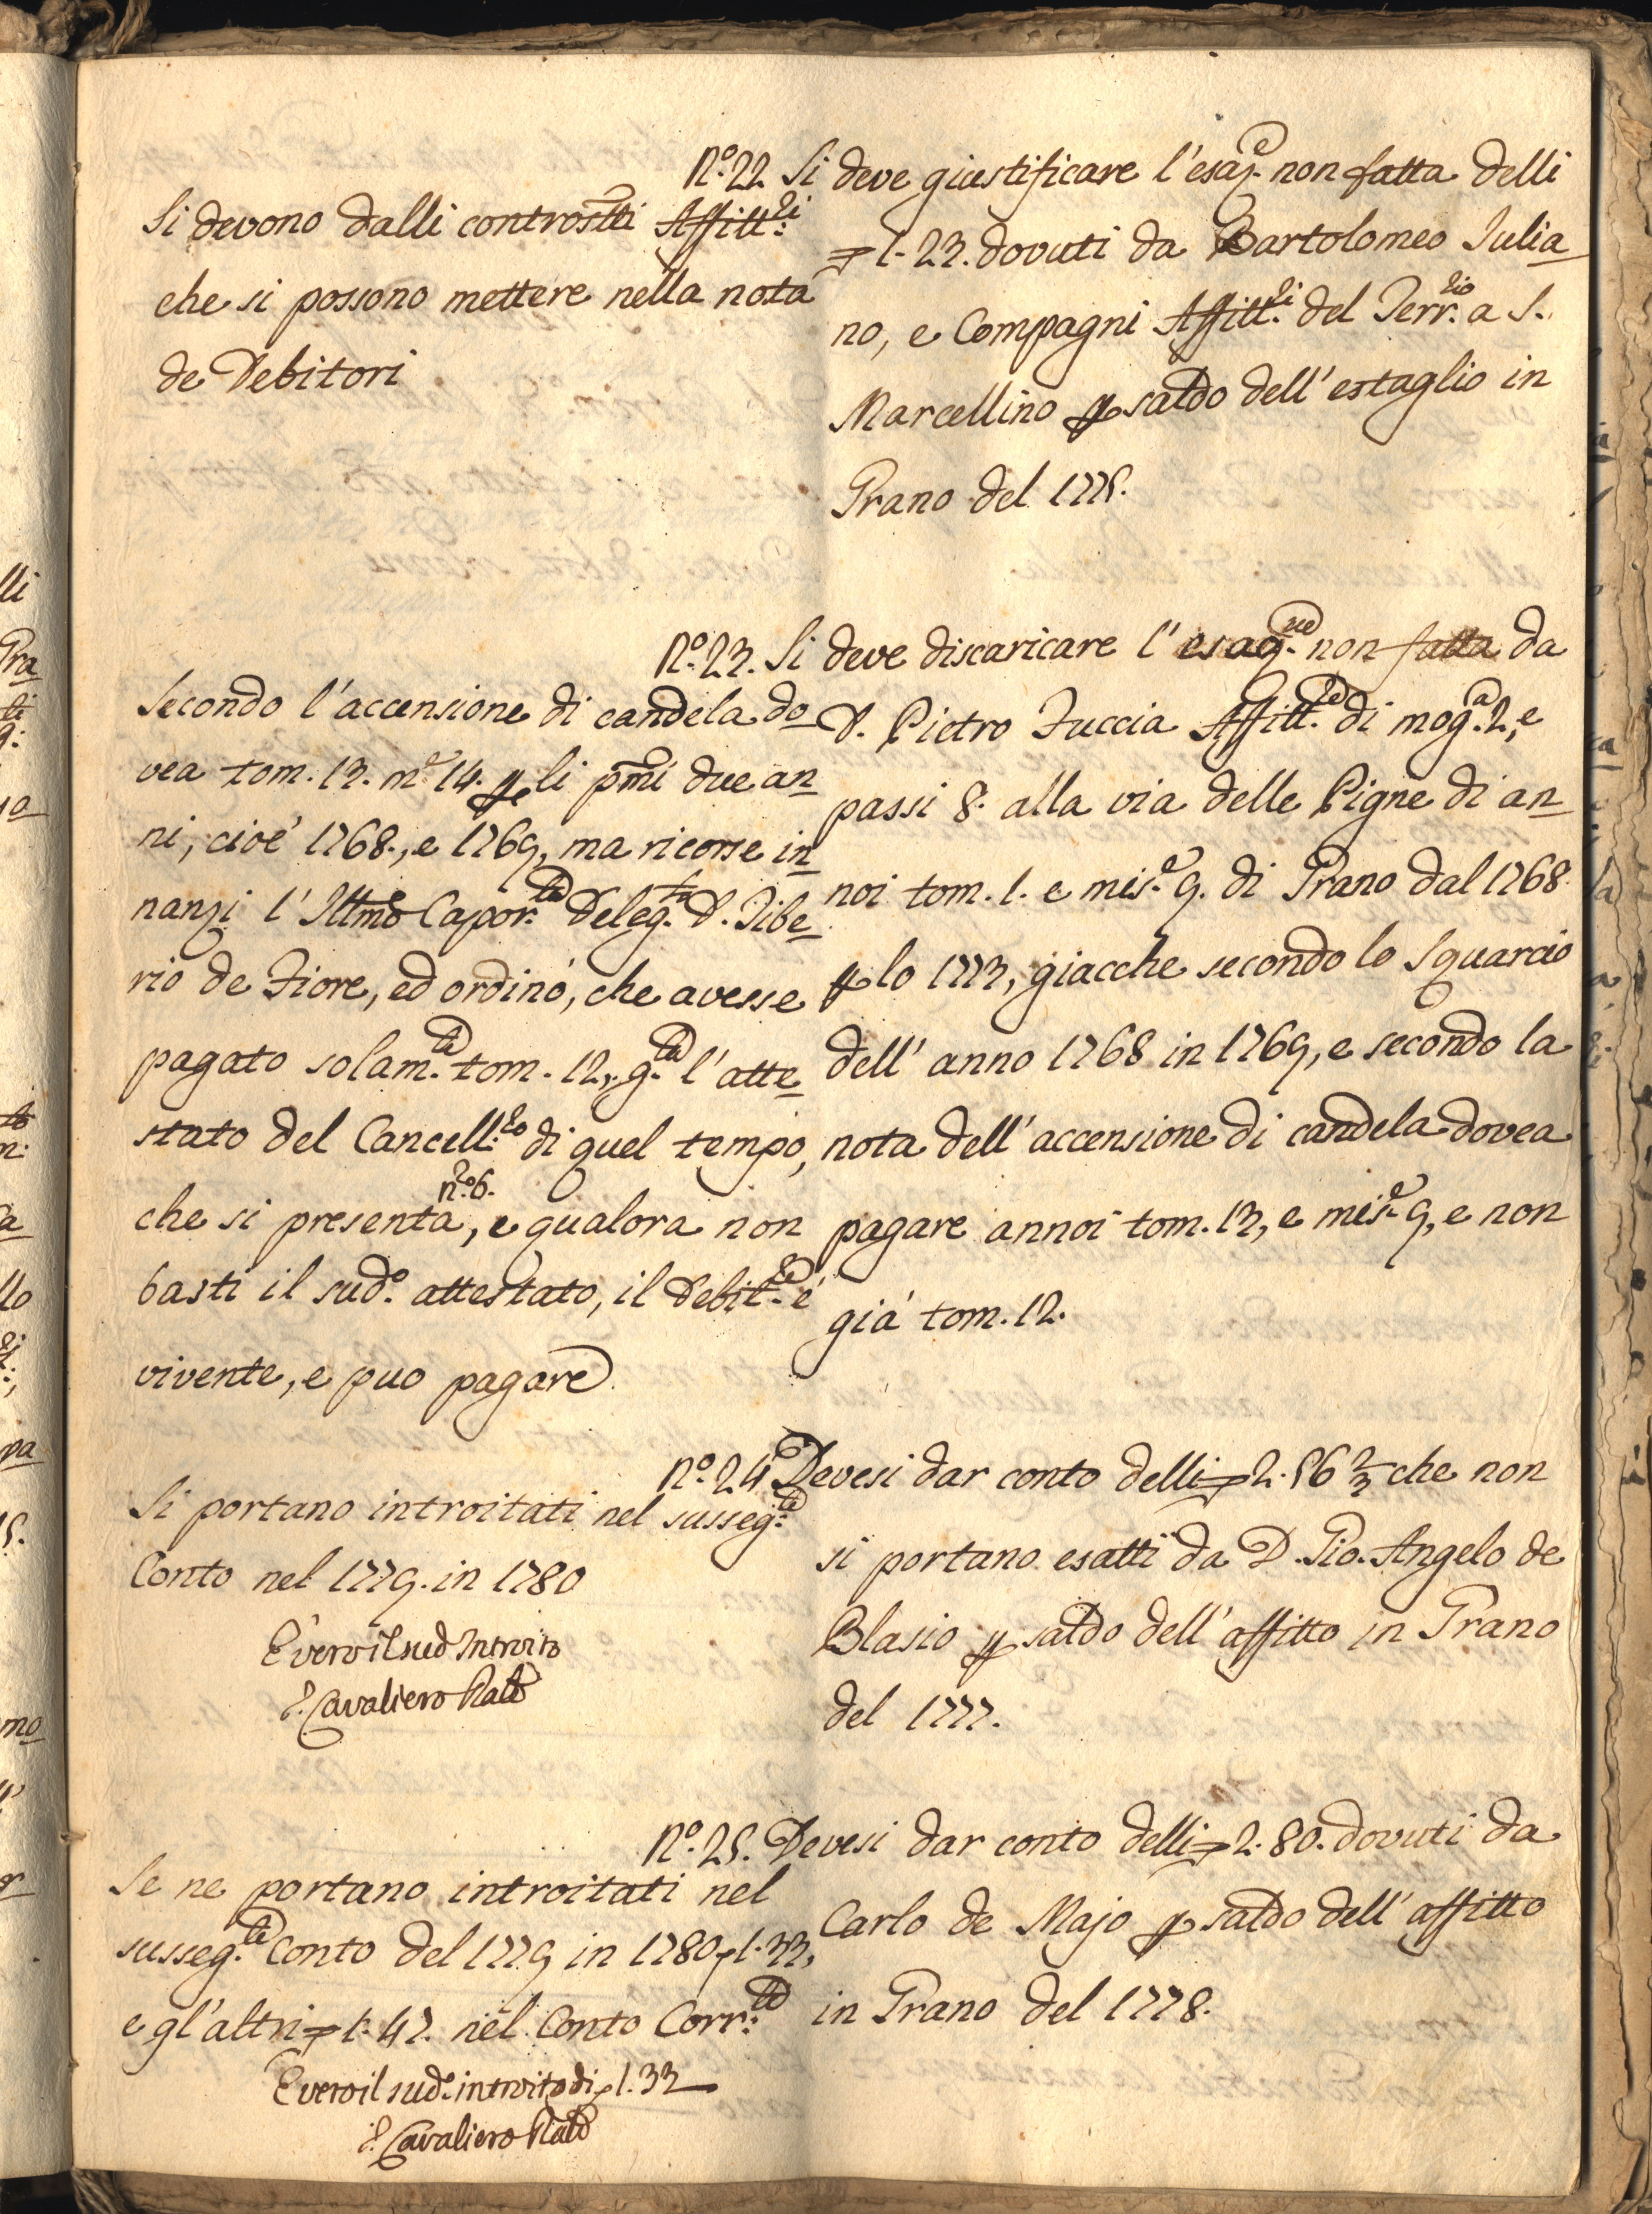 N.º 22. Si deve giustificare l'esaz.e non fatta delli
1.23. dovuti da Bartolomeo Julia
no, e Compagni Affitt.ri del Terr.rio a S.
Marcellino p saldo dell'estaglio in
Grano del 1775.
Si devono dalli controsti Affitt.ri
che si possono mettere nella nota
de Debitori
N.º 23. Si deve discaricare l'esag.ne non fatta da
D. Pietro Fuccia Affitt.re di mog.a 2, e
passi 8. alla via delle Pigne di an
noi tom. 1. e mis.e 9. di Grano dal 1768.
p lo 1773, giacche secondo lo Squarcio
dell'anno 1768 in 1769, e secondo la
nota dell'accensione di candela dovea
pagare annoi tom. 13, e mis.e 9, e non
già tom. 12.
Secondo l'accensione di candela do
vea tom. 13. m.e 14. p li pmi due an
ni, cioè 1768., e 1769, ma ricorse in
nanzi l'Illmo Capor.le Deleg.to D. Tibe
rio de Fiore, ed ordinò, che avesse
pagato solam.te tom. 12, g.ta l'atte
stato del Cancell.ro di quel tempo,
che si presenta n.º 6., e qualora non
basti il sud.º attestato, il Debit.re è
vivente, e puo pagare
N.º 24. Devesi dar conto delli 2.56 2/3 che non
si portano esatti da D. Gio. Angelo de
Blasio p saldo dell'affitto in Grano
del 1777.
Si portano introitati nel susseg.te
Conto nel 1779. in 1780
È vero il sud introito
Cavaliero Rale
N.º 25. Devesi dar conto delli 2.80. dovuti da
Carlo de Majo p saldo dell'affitto
in Grano del 1778.
Se ne portano introitati nel
susseg.te Conto del 1779 in 1780 1.33,
e gl'altri 1.47. nel Conto Corr.te
È vero il sud.º introito di 1.33
Cavaliero Rale